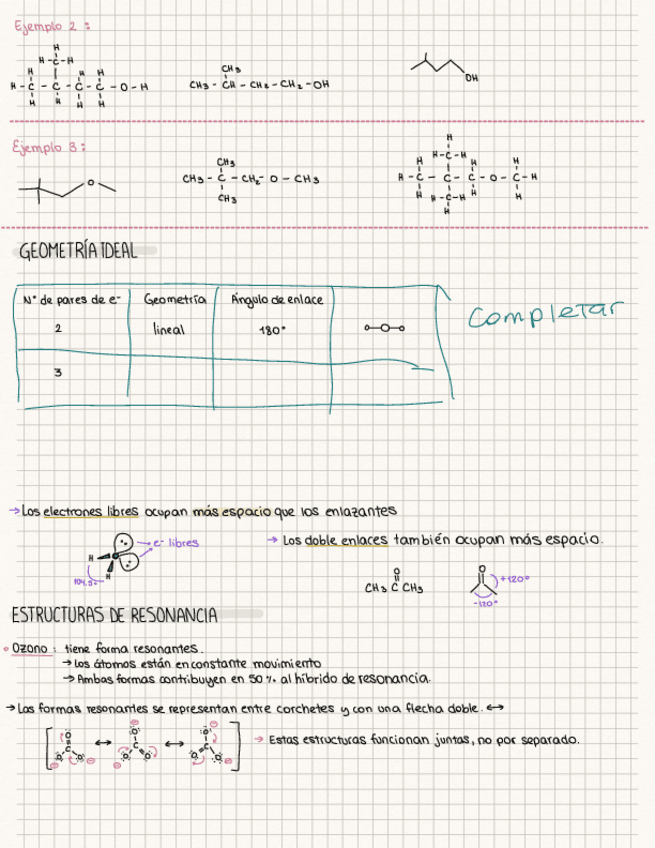 Ejemplo 2 :
H
H - C - H
H H H
H - C - C - C - C - O - H
H H H H
CH3
CH3 - CH - CH2 - CH2 - OH
OH
Ejemplo 3 :
O
CH3
CH3 - C - CH2 - O - CH3
CH3
H
H - C - H
H H H
H - C - C - C - O - C - H
H H - C - H H H
H
GEOMETRÍA IDEAL
N° de pares de e- Geometría Ángulo de enlace
2 lineal 180°
3
Completar
→ Los electrones libres ocupan más espacio que los enlazantes
e- libres
H
H
104.5°
→ Los doble enlaces también ocupan más espacio.
O
CH3 C CH3
O
+120°
-120°
ESTRUCTURAS DE RESONANCIA
Ozono : tiene forma resonantes.
→ Los átomos están en constante movimiento
→ Ambas formas contribuyen en 50 % al híbrido de resonancia.
→ Las formas resonantes se representan entre corchetes y con una flecha doble. ↔
[ O C O O ↔ O C O O ↔ O C O O ]
→ Estas estructuras funcionan juntas, no por separado.